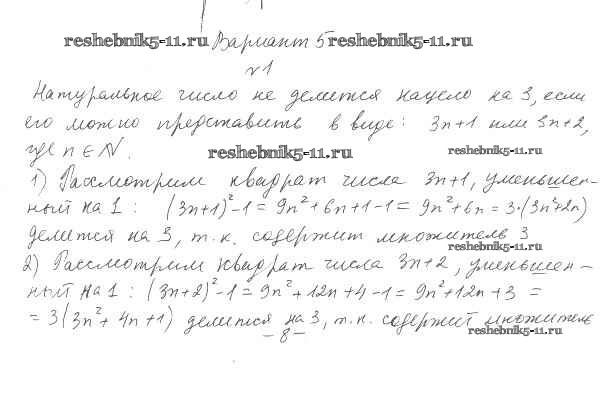 reshebnik5-11.ru Вариант 5 reshebnik5-11.ru
№1
Натуральное число не делится нацело на 3, если
его можно представить в виде: 3n+1 или 3n+2,
где n ∈ N. reshebnik5-11.ru reshebnik5-11.ru
1) Рассмотрим квадрат числа 3n+1, уменьшен-
ный на 1: (3n+1)²-1 = 9n²+6n+1-1 = 9n²+6n = 3·(3n²+2n)
делится на 3, т.к. содержит множитель 3
reshebnik5-11.ru
2) Рассмотрим квадрат числа 3n+2, уменьшен-
ный на 1: (3n+2)²-1 = 9n²+12n+4-1 = 9n²+12n+3 =
= 3(3n²+4n+1) делится на 3, т.к. содержит множитель
reshebnik5-11.ru
-8-